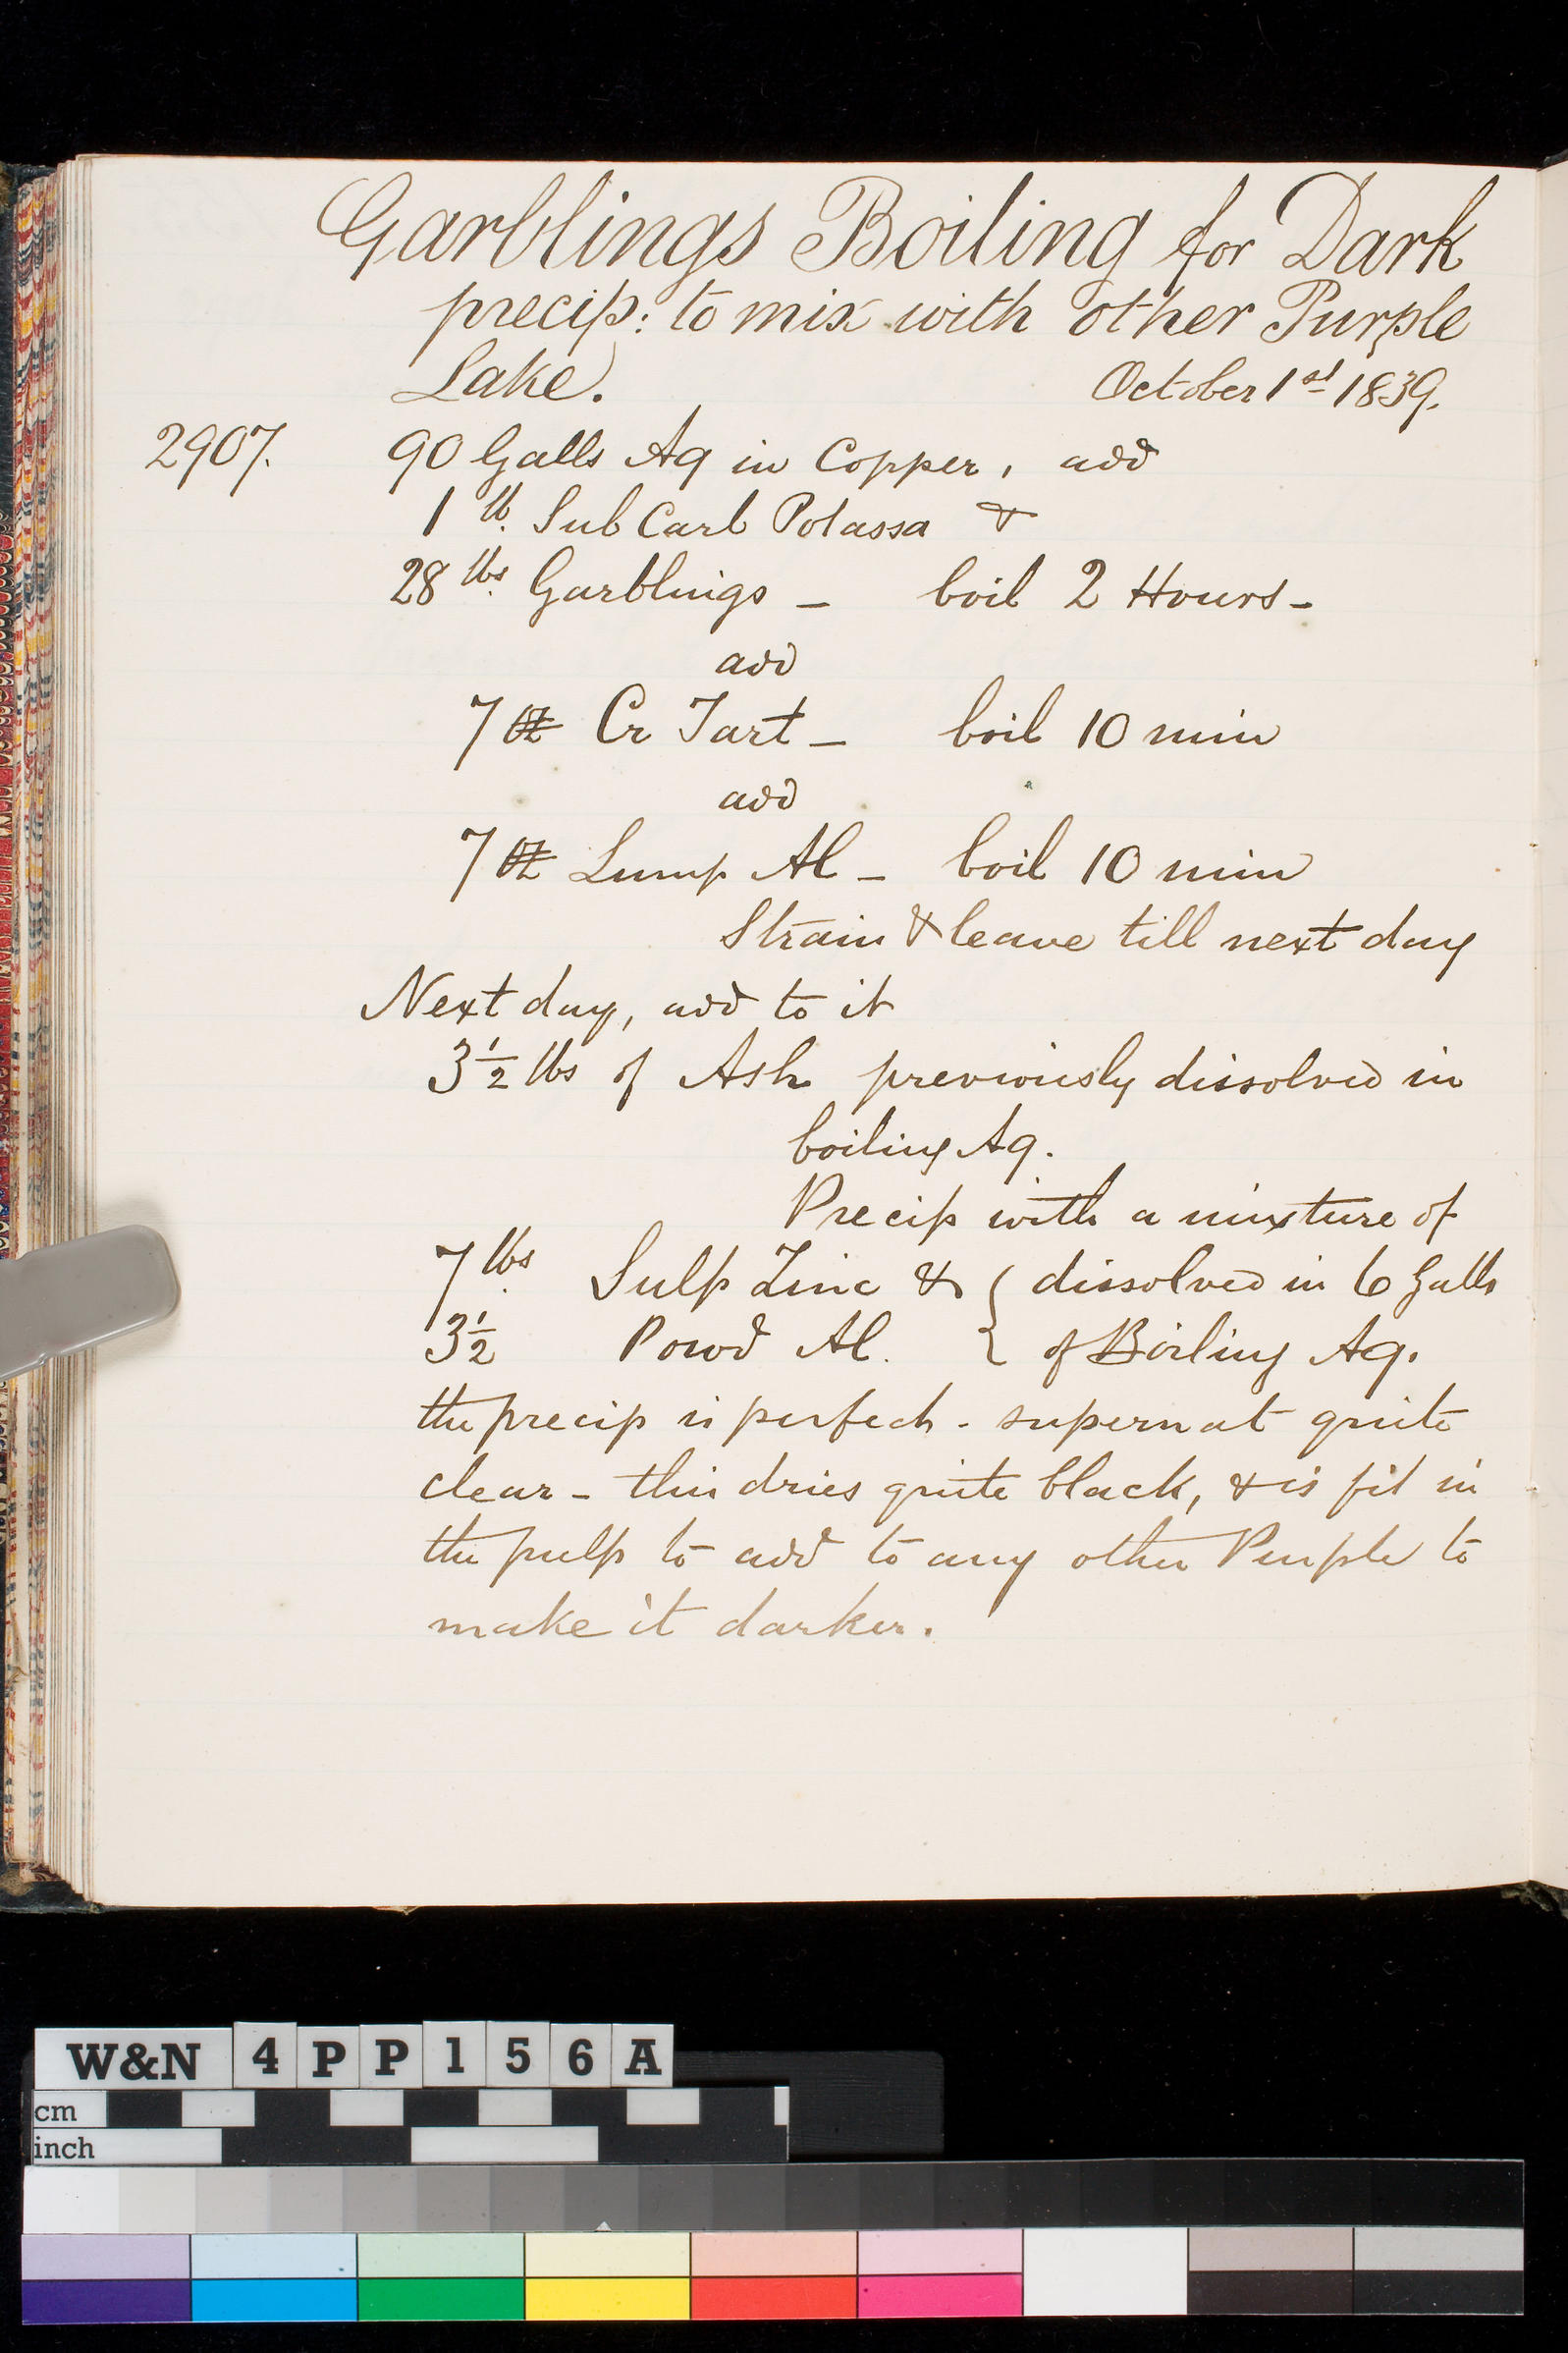 Garblings Boiling for Dark
precip: to mix with other Purple
Lake.
October 1st 1839.
2907. 90 Galls Aq in Copper, add
1 lb. Sub Carb Potassa &
28 lbs. Garblings – boil 2 Hours –
add
7 oz Cr Tart – boil 10 min
add
7 oz Lump Al – boil 10 min
Strain & leave till next day
Next day, add to it
3½ lbs of Ash previously dissolved in
boiling Aq.
Precip with a mixture of
7 lbs. Sulp Zinc & { dissolved in 6 Galls
3½ Powd Al. } of Boiling Aq.
the precip is perfect - supernat quite
clear – this dries quite black, & is fit in
the pulp to add to any other Purple to
make it darker.
W&N 4PP156A
cm
inch